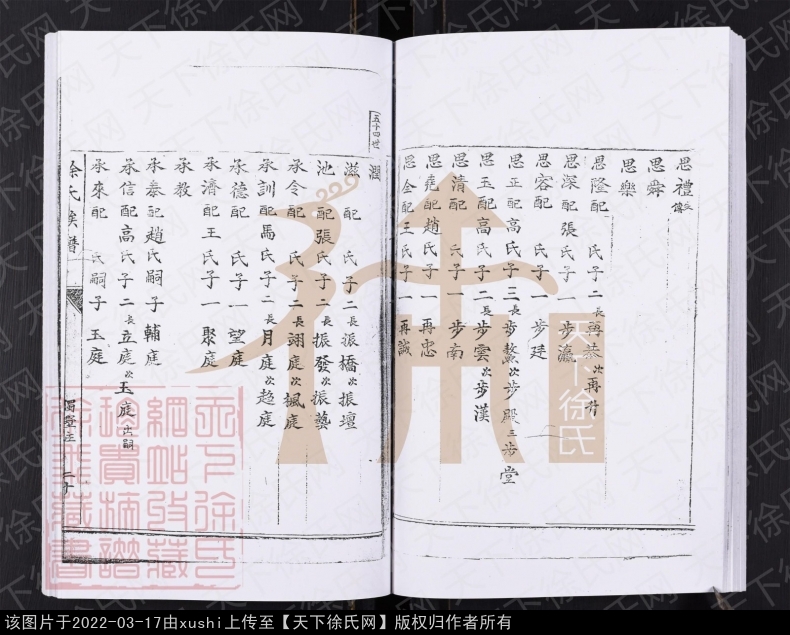 思禮 失傳
思舜
思樂
思隆配 氏子二 長再恭 次再
思深配張氏子一 步瀛
思容配 氏子一 步廷
思正配高氏子三 長步鰲 次步殿 三步堂
思玉配高氏子二 長步雲 次步漢
思清配 氏子一 步南
思堯配趙氏子一 再忠
思全配王氏子一 再誠
五十四世
潤
滋配 氏子二 長振橋 次振壇
池配張氏子二 長振發 次振藝
承令配 氏子二 長翊庭 次楓庭
承訓配馬氏子二 長月庭 次趋庭
承德配 氏子一 望庭
承濟配王氏子一 聚庭
承教
承泰配趙氏嗣子 輔庭
承信配高氏子二 長立庭 次玉庭 出嗣
承來配 氏嗣子 玉庭
徐氏族譜
二十
天下徐氏
天下徐氏網站收藏
徐氏網
该图片于2022-03-17由xushi上传至【天下徐氏网】版权归作者所有